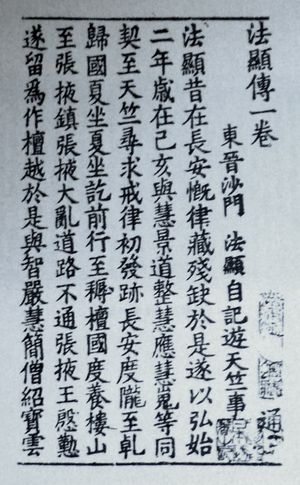 法顯傳一卷 通
東晉沙門 法顯自記遊天竺事
法顯昔在長安慨律藏殘缺於是遂以弘始
二年歳在己亥與慧景道整慧應慧嵬等同
契至天竺尋求戒律初發跡長安度隴至乹
歸國夏坐夏坐訖前行至耨檀國度養樓山
至張掖鎮張掖大亂道路不通張掖王慇懃
遂留為作檀越於是與智嚴慧簡僧紹寶雲